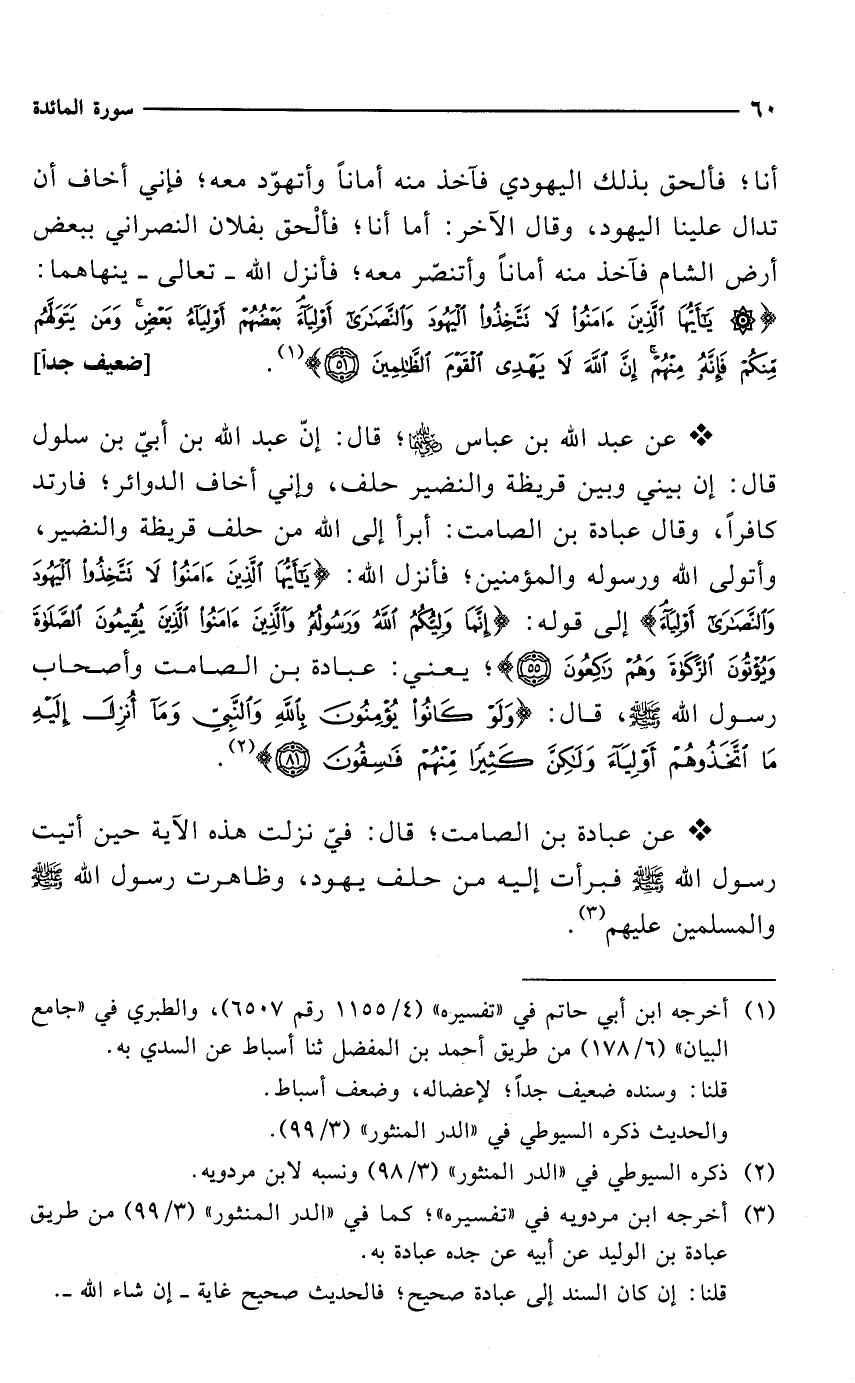 ٦٠ سورة المائدة
أنا؛ فألحق بذلك اليهودي فآخذ منه أماناً وأتهوّد معه؛ فإني أخاف أن
تدال علينا اليهود، وقال الآخر: أما أنا؛ فألْحق بفلان النصراني ببعض
أرض الشام فآخذ منه أماناً وأتنصّر معه؛ فأنزل الله ـ تعالى ـ ينهاهما:
﴿۞ يَٰٓأَيُّهَا ٱلَّذِينَ ءَامَنُوا۟ لَا تَتَّخِذُوا۟ ٱلْيَهُودَ وَٱلنَّصَٰرَىٰٓ أَوْلِيَآءَ ۘ بَعْضُهُمْ أَوْلِيَآءُ بَعْضٍ ۚ وَمَن يَتَوَلَّهُم
مِّنكُمْ فَإِنَّهُۥ مِنْهُمْ ۗ إِنَّ ٱللَّهَ لَا يَهْدِى ٱلْقَوْمَ ٱلظَّٰلِمِينَ ۝٥١﴾(١). [ضعيف جداً]
❖ عن عبد الله بن عباس رضي الله عنهما؛ قال: إنّ عبد الله بن أبيّ بن سلول
قال: إن بيني وبين قريظة والنضير حلف، وإني أخاف الدوائر؛ فارتد
كافراً، وقال عبادة بن الصامت: أبرأ إلى الله من حلف قريظة والنضير،
وأتولى الله ورسوله والمؤمنين؛ فأنزل الله: ﴿يَٰٓأَيُّهَا ٱلَّذِينَ ءَامَنُوا۟ لَا تَتَّخِذُوا۟ ٱلْيَهُودَ
وَٱلنَّصَٰرَىٰٓ أَوْلِيَآءَ ۘ﴾ إلى قوله: ﴿إِنَّمَا وَلِيُّكُمُ ٱللَّهُ وَرَسُولُهُۥ وَٱلَّذِينَ ءَامَنُوا۟ ٱلَّذِينَ يُقِيمُونَ ٱلصَّلَوٰةَ
وَيُؤْتُونَ ٱلزَّكَوٰةَ وَهُمْ رَٰكِعُونَ ۝٥٥﴾؛ يعني: عبادة بن الصامت وأصحاب
رسول الله ﷺ، قال: ﴿وَلَوْ كَانُوا۟ يُؤْمِنُونَ بِٱللَّهِ وَٱلنَّبِىِّ وَمَآ أُنزِلَ إِلَيْهِ
مَا ٱتَّخَذُوهُمْ أَوْلِيَآءَ وَلَٰكِنَّ كَثِيرًا مِّنْهُمْ فَٰسِقُونَ ۝٨١﴾(٢).
❖ عن عبادة بن الصامت؛ قال: فيّ نزلت هذه الآية حين أتيت
رسول الله ﷺ فبرأت إليه من حلف يهود، وظاهرت رسول الله ﷺ
والمسلمين عليهم(٣).
(١) أخرجه ابن أبي حاتم في «تفسيره» (٤/ ١١٥٥ رقم ٦٥٠٧)، والطبري في «جامع
البيان» (٦/ ١٧٨) من طريق أحمد بن المفضل ثنا أسباط عن السدي به.
قلنا: وسنده ضعيف جداً؛ لإعضاله، وضعف أسباط.
والحديث ذكره السيوطي في «الدر المنثور» (٣/ ٩٩).
(٢) ذكره السيوطي في «الدر المنثور» (٣/ ٩٨) ونسبه لابن مردويه.
(٣) أخرجه ابن مردويه في «تفسيره»؛ كما في «الدر المنثور» (٣/ ٩٩) من طريق
عبادة بن الوليد عن أبيه عن جده عبادة به.
قلنا: إن كان السند إلى عبادة صحيح؛ فالحديث صحيح غاية ـ إن شاء الله ـ.